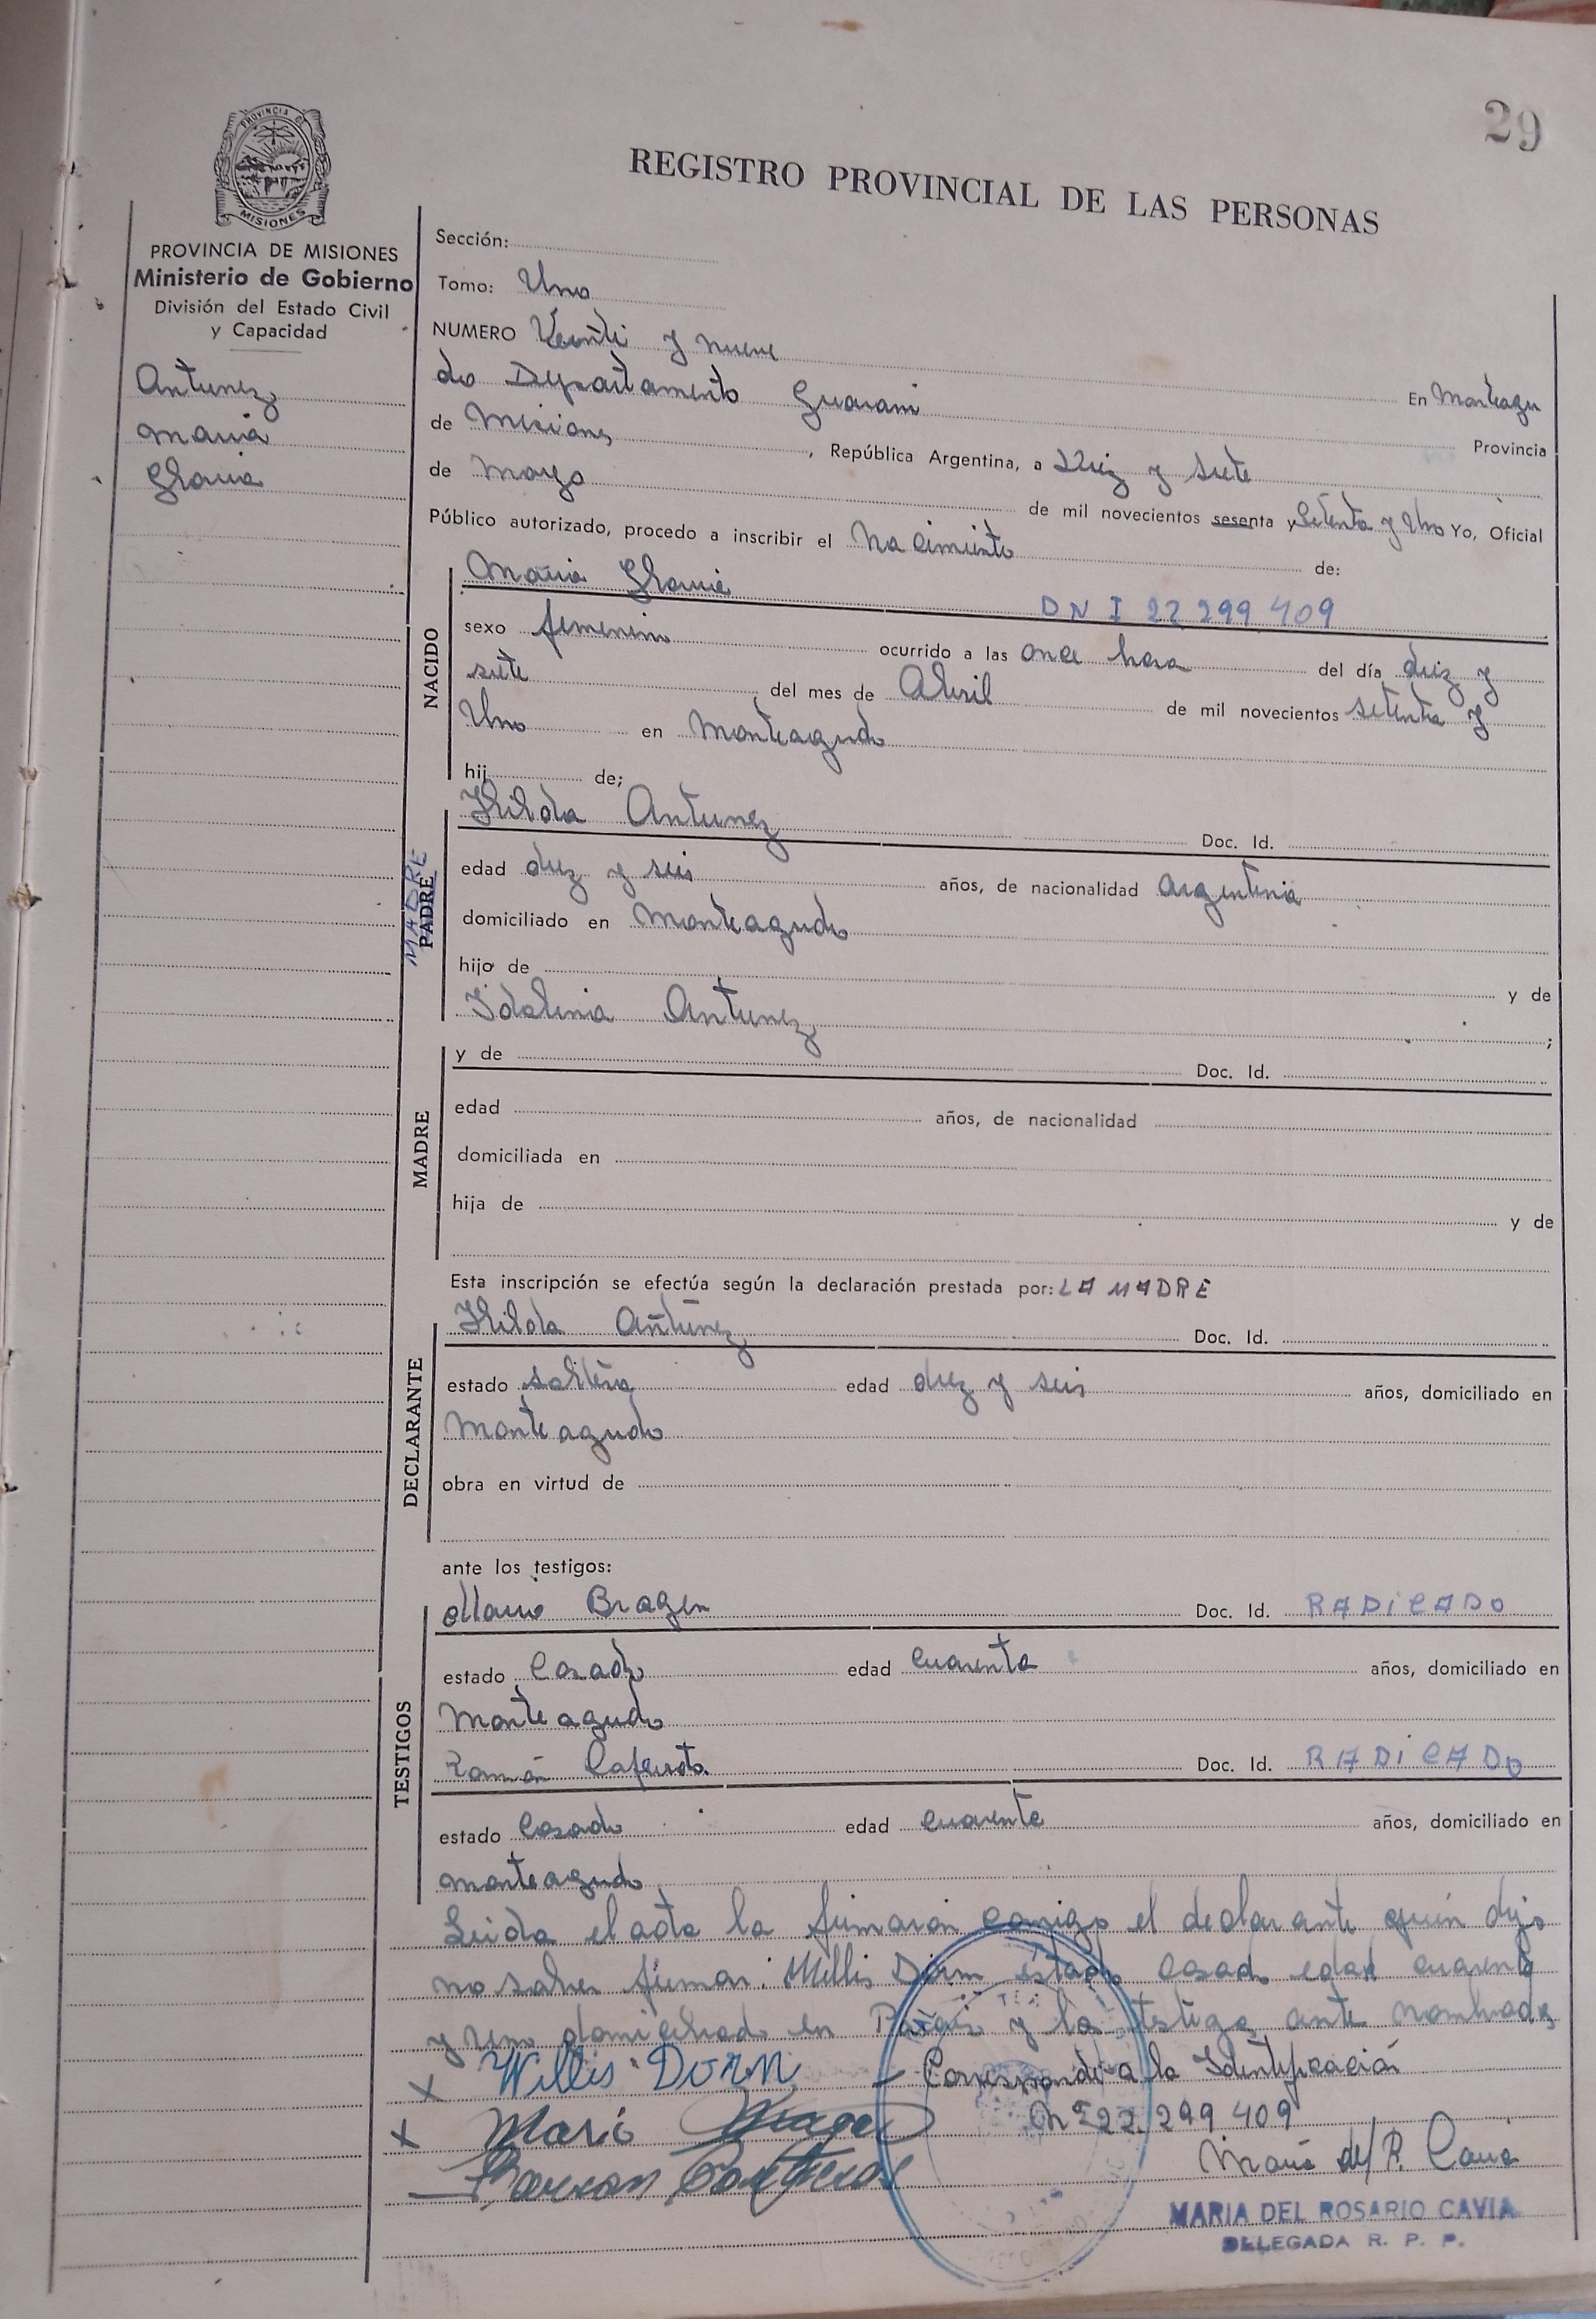 29
REGISTRO PROVINCIAL DE LAS PERSONAS
PROVINCIA DE MISIONES
PROVINCIA DE MISIONES
Ministerio de Gobierno
División del Estado Civil
y Capacidad
Antunez
Maria
Gloria
Sección:
Tomo: Uno
NUMERO Veinti y nueve
En Monteagu
do Departamento Guarani
Provincia
de Misiones, República Argentina, a Diez y siete
de Mayo de mil novecientos sesenta y Setenta y Uno Yo, Oficial
Público autorizado, procedo a inscribir el Nacimiento de:
NACIDO
Maria Gloria DNI 22 299 409
sexo femenino ocurrido a las once hora del día diez y
siete del mes de Abril de mil novecientos setenta y
Uno en Monteagudo
hij de;
MADRE
PADRE
Hilda Antunez Doc. Id.
edad diez y seis años, de nacionalidad argentina
domiciliado en Monteagudo
hijo de y de
Idalina Antunez ;
MADRE
y de Doc. Id.
edad años, de nacionalidad
domiciliada en
hija de y de
Esta inscripción se efectúa según la declaración prestada por: LA MADRE
DECLARANTE
Hilda Antunez Doc. Id.
estado soltera edad diez y seis años, domiciliado en
Monteagudo
obra en virtud de
ante los testigos:
TESTIGOS
Mario Bragen Doc. Id. RADiCADO
estado Casado edad cuarenta años, domiciliado en
Monteagudo
Ramón Doc. Id. RADiCADO
estado Casado edad cuarenta años, domiciliado en
monteagudo
Leida el acta la firmaron conigo el declarante quien dijo
no saber firmar: Willis Dorn estado casado edad cuarenta
y uno domiciliado en y los testigos ante nombrados
x Willis Dorn – Corresponde a la Identificación
x Mario Nº 22.299 409
María del R. Cavia
MARIA DEL ROSARIO CAVIA
DELEGADA R. P. P.